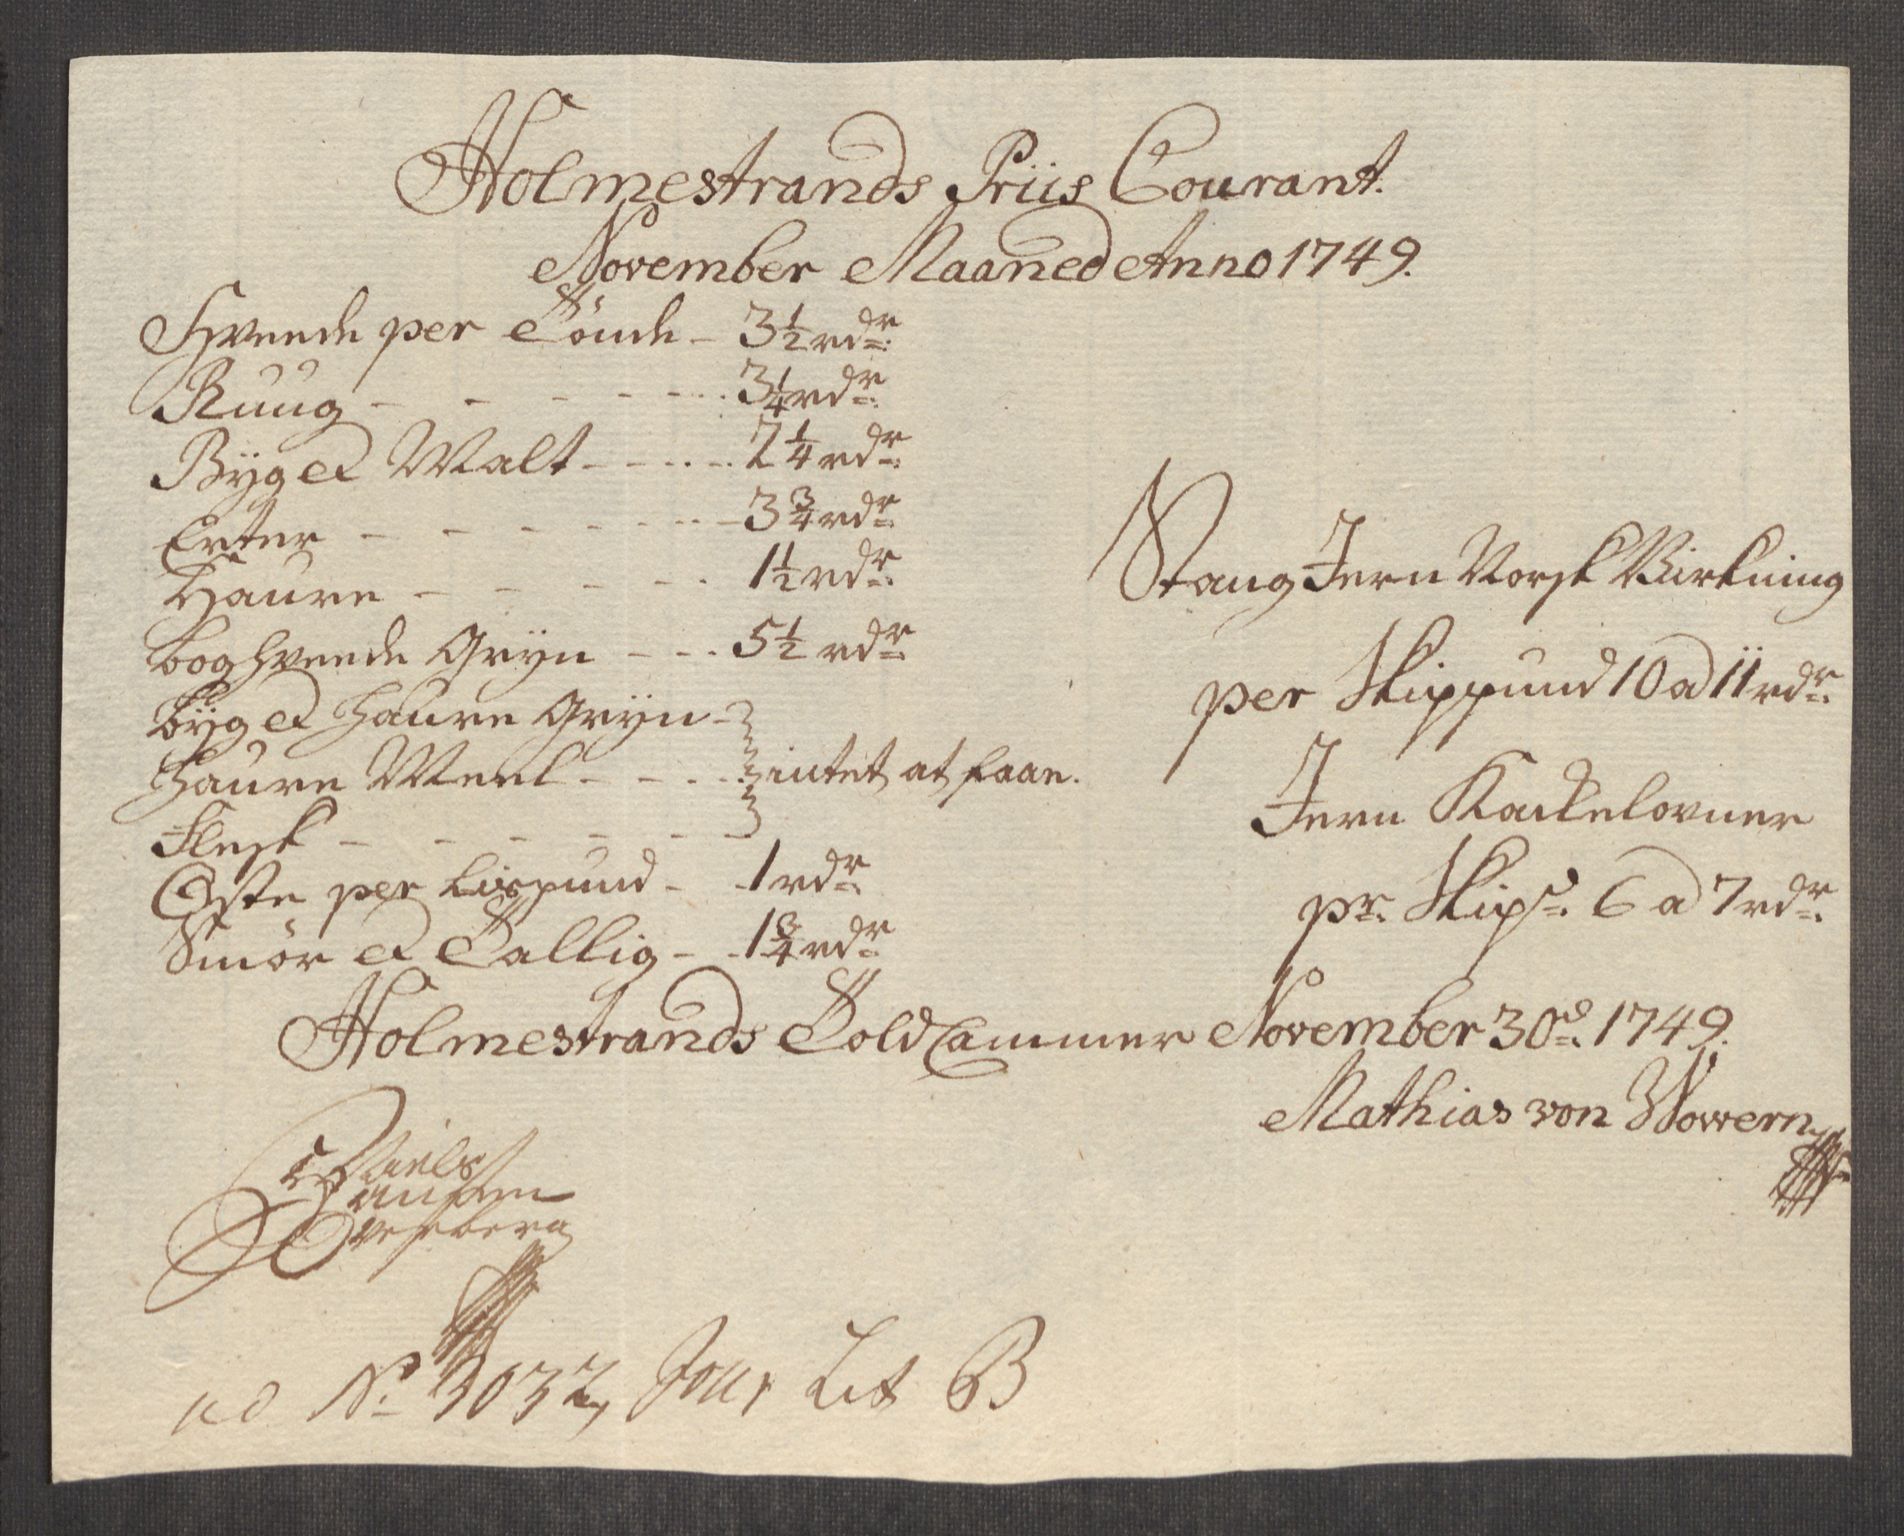 Holmestrands Priis Courant.
November Maaned Anno 1749.
Hveede per Tönde - 3 1/2 rdr:
Ruug - - - - - - 3 1/4 rdr:
Byg et Malt - - - - - 2 1/4 rdr:
Erter - - - - - - - 3 3/4 rdr:
Haure - - - - - 1 1/2 rdr:
boghveede Gryn - - - 5 1/2 rdr:
byg et haure Gryn -
haure Meel - - - - intet at faae.
Flesk - - - - - -
Oste per Lispund - - 1 rdr:
Smör et Tallig - - 1 3/4 rdr:
Stang Jern Norsk Virkning
per Skippund 10 a 11 rdr:
Jern Kackelovner
pr: Skip: 6 a 7 rdr:
Holmestrands Told Cammer November 30d: 1749.
Mathias von Wowern
Niels
Hansen
ad No 3032, Jour Lit B